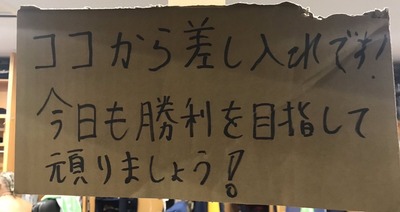 ココから差し入れです!
今日も勝利を目指して
頑りましょう!